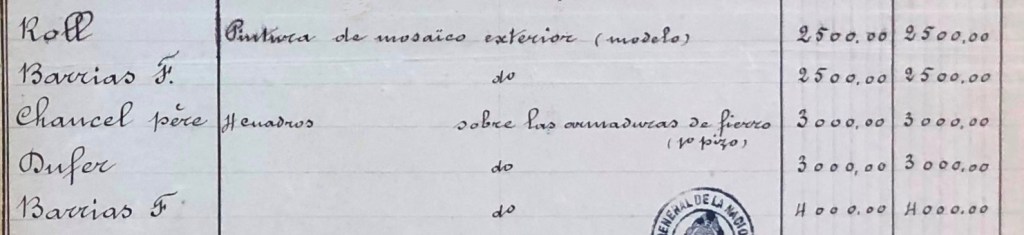 Roll Pintura de mosaïco exterior (modelo) 2500,00 2500,00
Barrias F. do 2500,00 2500,00
Chancel père 4 cuadros sobre las armaduras de fierro 3000,00 3000,00
(1º pizo)
Dufer do 3000,00 3000,00
Barrias F do 4000,00 4000,00
GENERAL DE LA NACIO